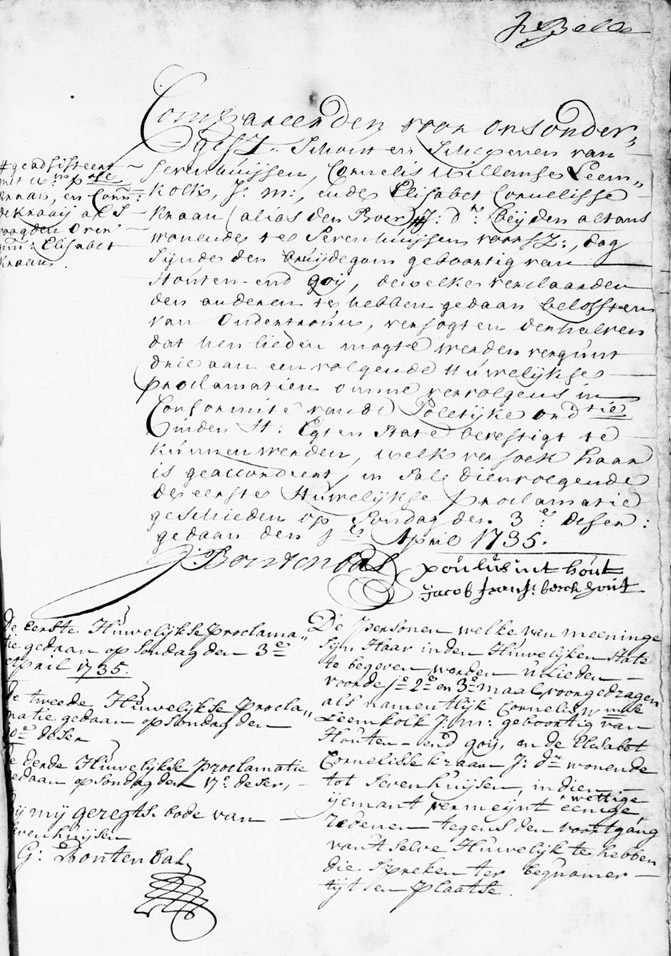 Compareerden voor onsonder-
gesz. Schout en Schepenen van
Sevenhuijsen, Cornelis Willemse Leem-
kolk, J: m:, ende Elisabet Cornelisse
Kraan (alias den Boer) # J: dr: beijden althans
wonende te Sevenhuijsen voorsz:, dog
sijnde den bruijdegom geboortig van
Houten-end goij, dewelke verclaarden
den anderen te hebben gedaan beloften
van Ondertrouw, versogten derhalven
dat hen lieden mogte werden vergunt
drie aan een volgende Huwelijkse
proclamatien omme vervolgens in
Conformité van de Politijke ordtie
inden H: Egten State bevestigt te
kunnen werden, welk versoek haar
is geaccordeert, en sal dienvolgende
de eerste Huwelijkse proclamatie
geschieden op Sondag den 3e deser:
gedaan den 1e April 1735.
# geadsisteert
Kraan, en Corn:
de Kraaij als
voogden over
gem: Elisabet
Kraan.
J: Bontenbal
poulus int hout
jacob Jansz: berckhout
De eerste Huwelijkse proclama-
tie gedaan op Sondag den 3e
April 1735.
de tweede Huwelijkse procla-
matie gedaan op Sondag den
10e deser
de derde Huwelijkse proclamatie
gedaan op Sondag den 17e deser,
bij mij geregts bode van
Sevenhuijsen
G: Bontenbal
De personen welke van meeninge
sijn Haar inden Huwelijken State
te begeven werden u lieden
voor de 1e 2e en 3e maal voorgedragen
als namentlijk Cornelis Wmse
Leemkolk J: m: geboortig van
Houten-end goij, en de Elisabet
Cornelisse Kraan J: dr: wonende
tot Sevenhuijsen, indien
ijemant vermeijnt eenige wettige
redenen tegens den voortgang
van 't selve Huwelijk te hebben
die spreken ter bequamer
tijt en plaatse.